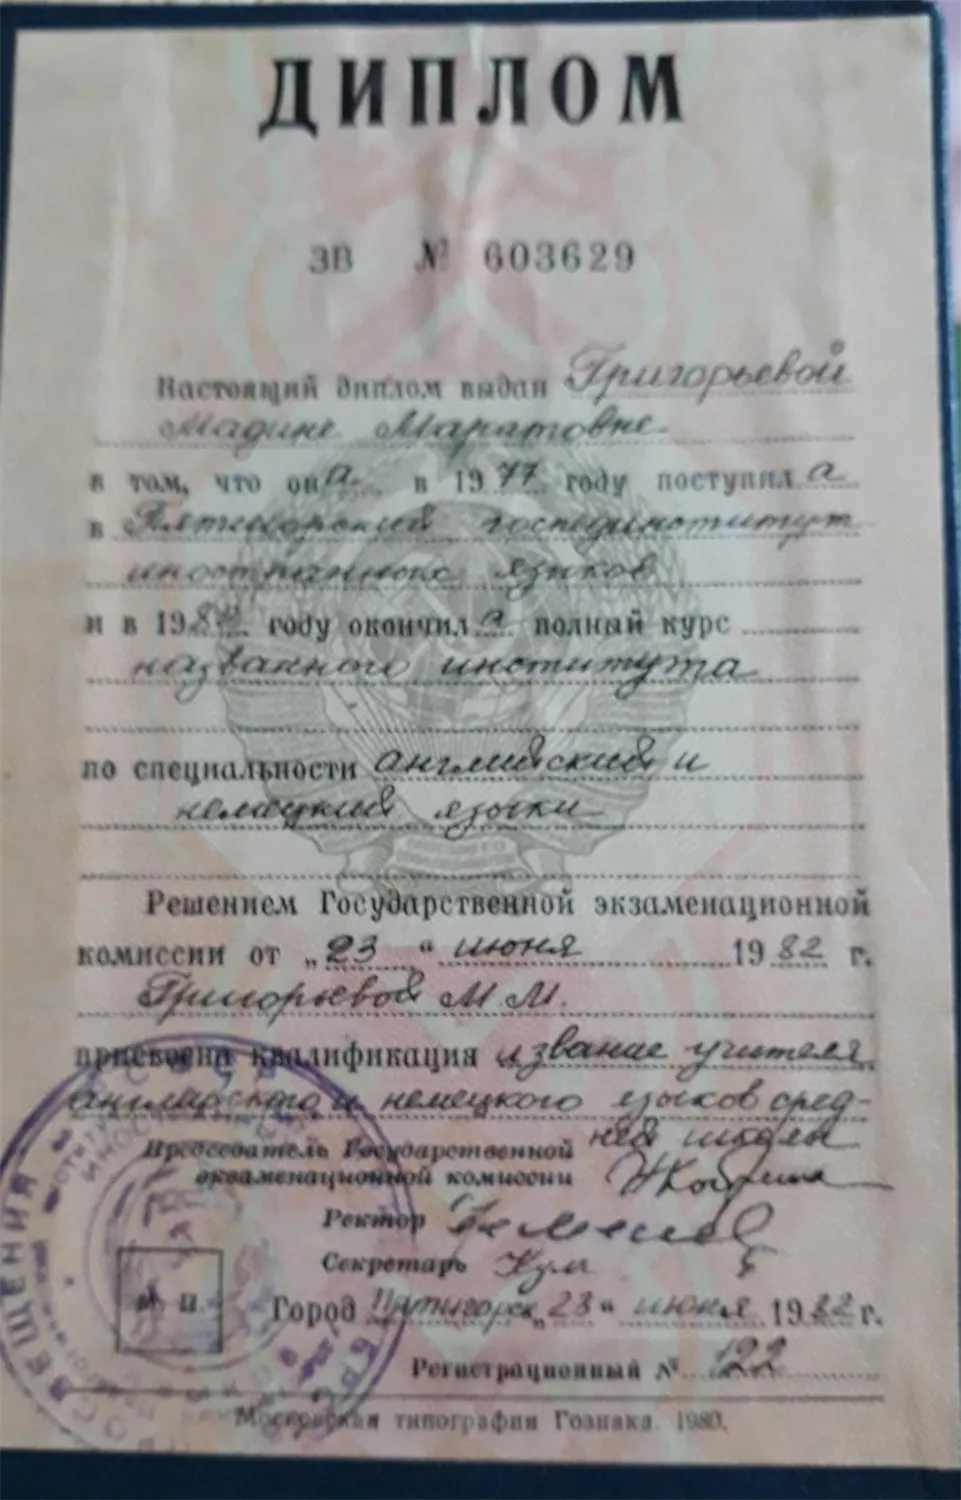 ДИПЛОМ
ЗВ № 603629
Настоящий диплом выдан Григорьевой
Мадине Маратовне
в том, что она в 1977 году поступила
в Пятигорский госпединститут
иностранных языков
и в 1982 году окончила полный курс
названного института
по специальности английский и
немецкий языки
Решением Государственной экзаменационной
комиссии от „23“ июня 1982 г.
Григорьевой М.М.
присвоена квалификация и звание учителя
английского и немецкого языков сред-
ней школы
Председатель Государственной
экзаменационной комиссии
Ректор
Секретарь
Город Пятигорск „23“ июня 1982 г.
Регистрационный № 122
М П
Московская типография Гознака. 1980.